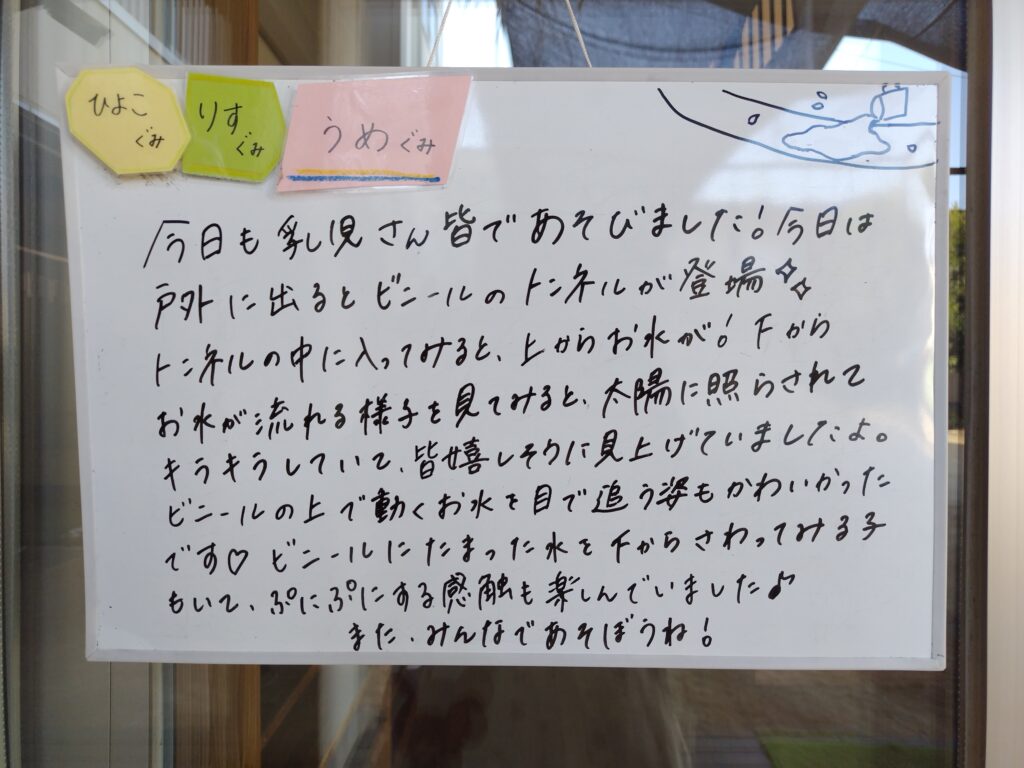 ひよこ
ぐみ
りす
ぐみ
うめぐみ
今日も乳児さん皆であそびました!今日は
戸外に出るとビニールのトンネルが登場✧✧
トンネルの中に入ってみると、上からお水が!下から
お水が流れる様子を見てみると、太陽に照らされて
キラキラしていて、皆嬉しそうに見上げていましたよ。
ビニールの上で動くお水を目で追う姿もかわいかった
です♡ ビニールにたまった水を下からさわってみる子
もいて、ぷにぷにする感触も楽しんでいました♪
また、みんなであそぼうね!